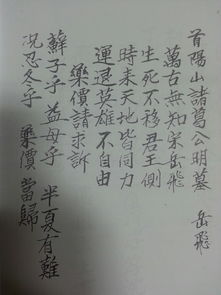 首陽山諸葛公明墓 岳飛
萬古無知宋岳飛
生死不移君王側
時来天地皆同力
運退英雄不自由
藥價請求訴
蘇子乎 益母乎 半夏有難
况忍冬乎 藥價當歸